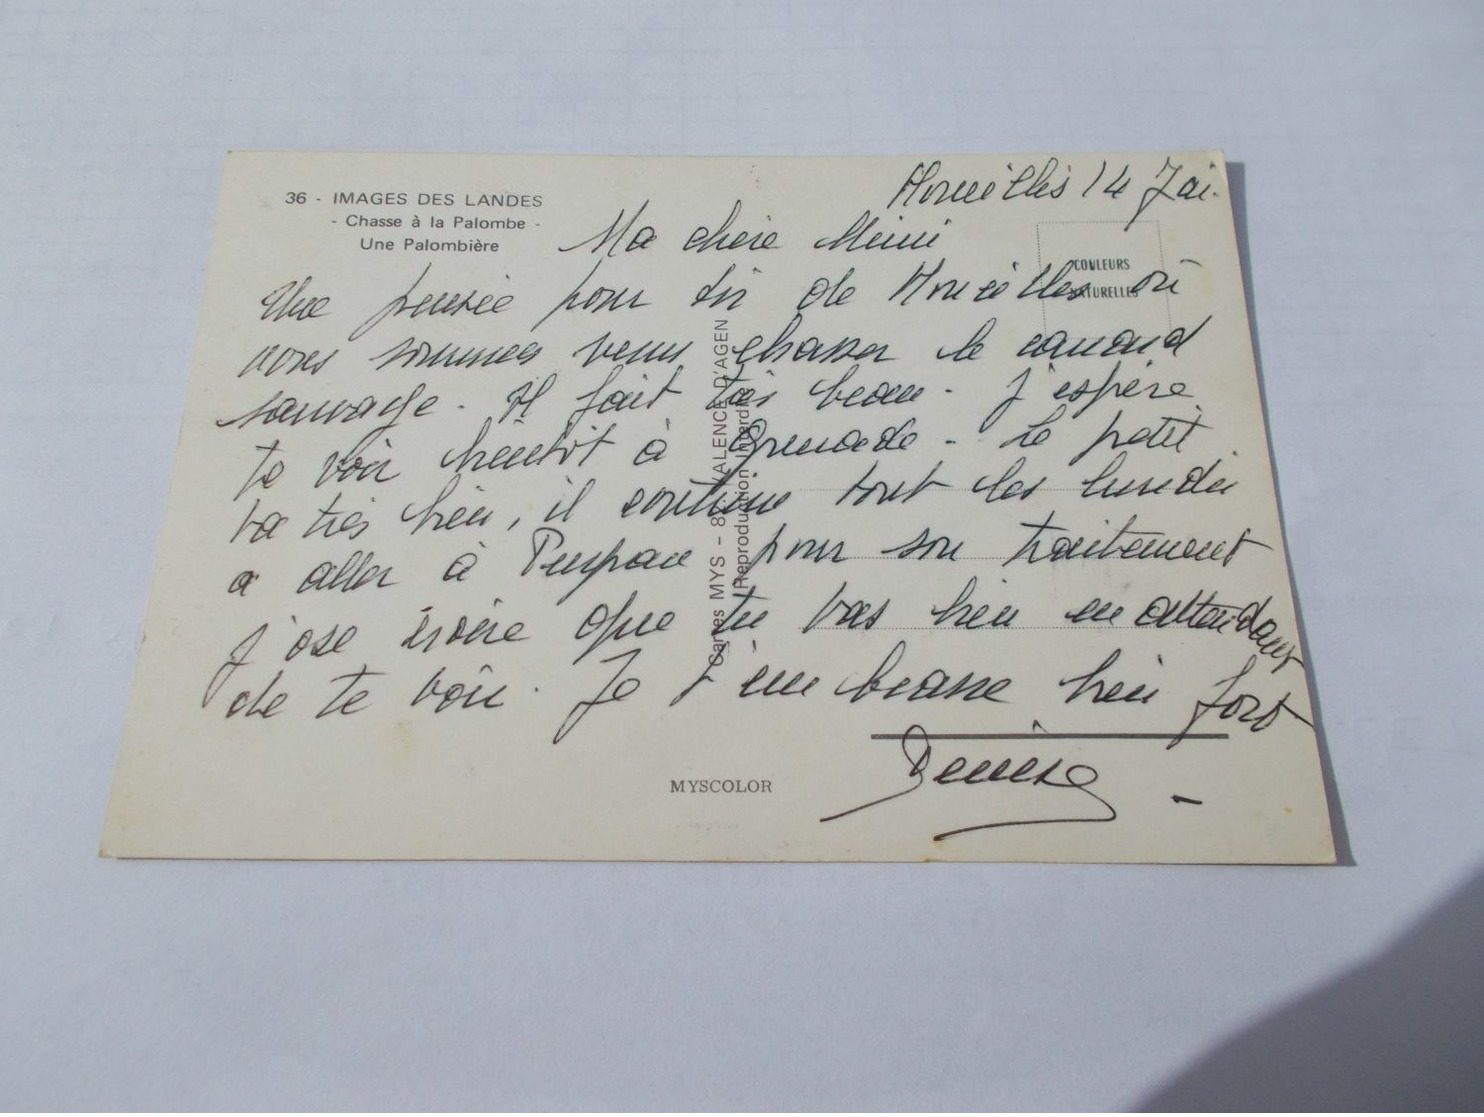 36 - IMAGES DES LANDES
- Chasse à la Palombe -
Une Palombière
14 Jai.
COULEURS
NATURELLES
Ma chère Mimi
Une pensée pour toi de où
nous sommes venu chasser le canard
sauvage. Il fait très beau. J'espère
te voir bientôt à Grenade. Le petit
va très bien, il continue tout les lundis
a aller à Purpan pour son traitement
J'ose croire que tu vas bien en attendant
de te voir. Je t'embrasse bien fort
Denise
Cartes MYS - 82. VALENCE D'AGEN
(Reproduction Interdite)
MYSCOLOR